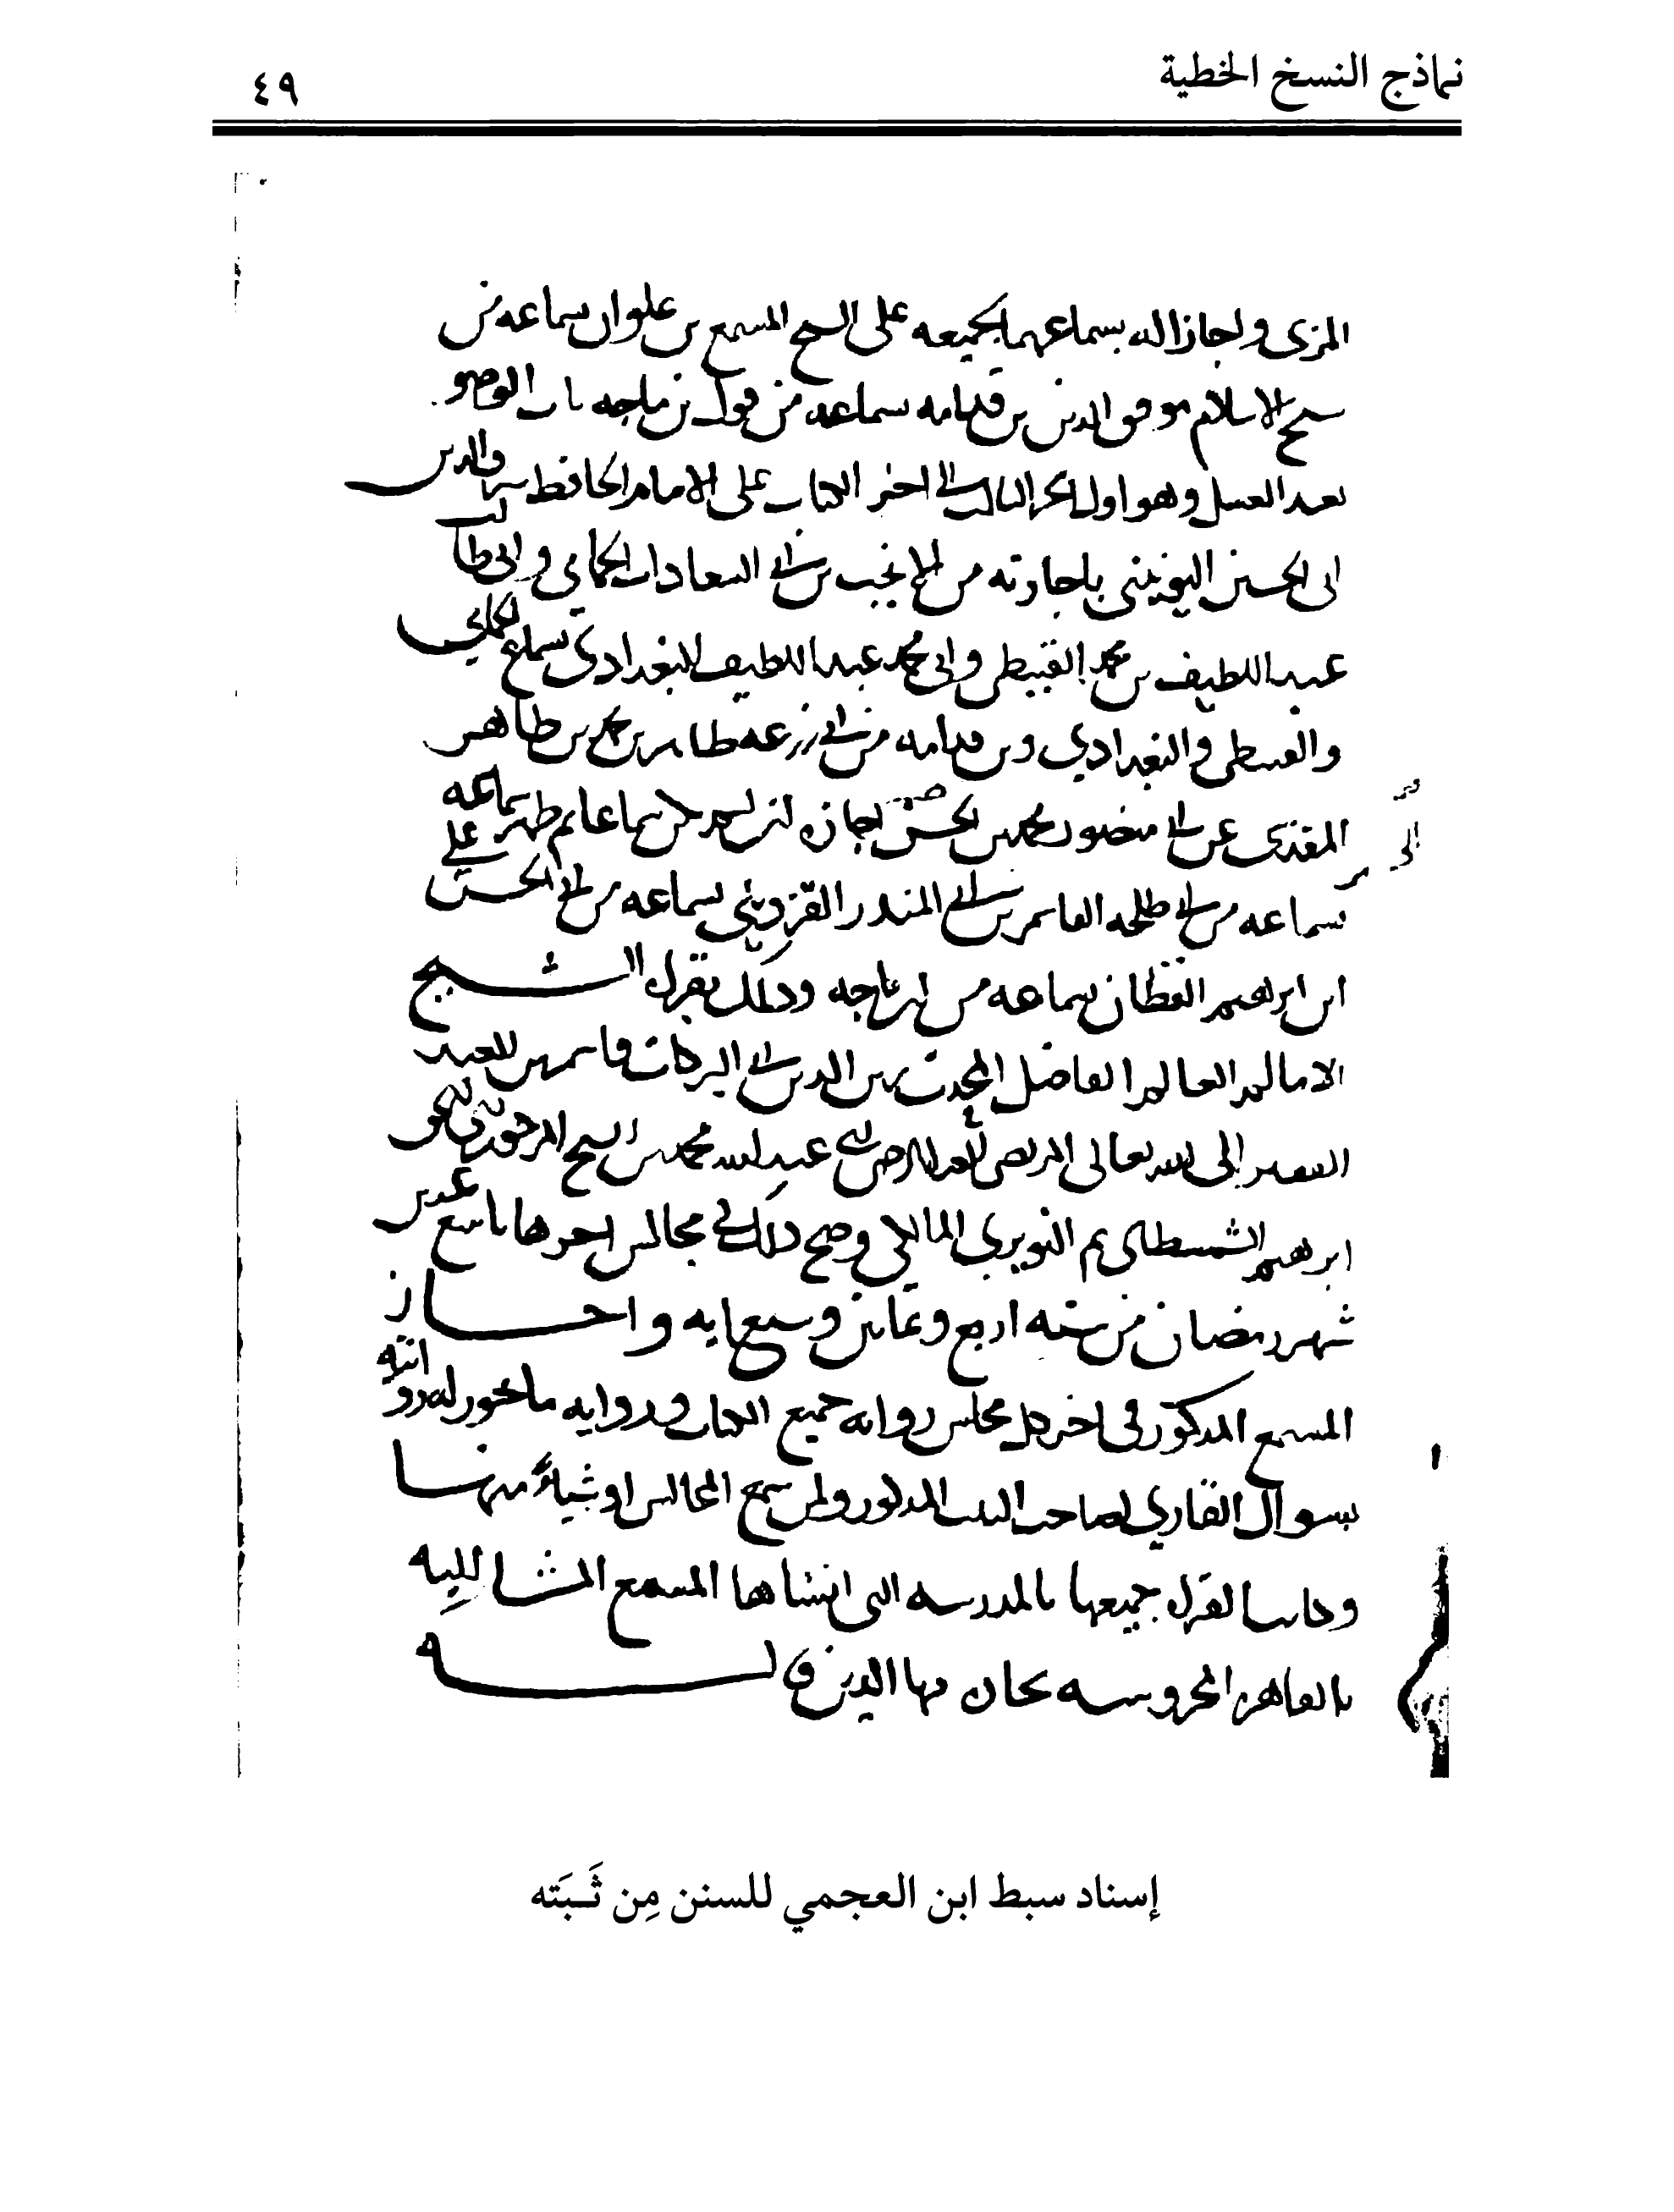 نماذج النسخ الخطية
٤٩
المزي واجازاله بسماعهما لجميعه على الشيخ المسمع بن علوان سماعه من
شيخ الاسلام موفق الدين بن قدامه سماعه من قول بن ماجه باب الوضو
بعد الغسل وهو اول الجز الثالث الى اخر الكتاب على الامام الحافظ شرف الدين
ابي الحسين اليونيني باجازته من الانجب بن ابي السعادات الحمامي وابي طالب
عبد اللطيف بن محمد القبيطي وابي محمد عبد اللطيف البغدادي بسماع الحمامي
والقبيطي والبغدادي وبن قدامه من ابي زرعه طاهر بن محمد بن طاهر
المقدسي عن ابي منصور محمد بن الحسين اجازه ان لم يكن سماعا ثم ظهر سماعه
بسماعه من ابي طلحه القاسم بن ابي المنذر القزويني بسماعه من ابي الحسن علي
ابن ابراهيم القطان بسماعه من ابن ماجه وذلك بقراة الشيخ
الامام العالم الفاضل المحدث الدين ابي البركات للعبد
الفقير الى الله تعالى عبد الله محمد بن الشيخ المرحوم
ابرهيم النويري المالكي وصح ذلك في مجالس اخرها تاسع عشر
شهر رمضان من سنه اربع وثمانين وسبعمايه واجاز
المسمع المذكور في اخر كل مجلس روايه جميع الكتاب وروايه ما يجوز له روايته
بسوال القاري لصاحب الثبت المذكور ولمن سمع المجالس او شياء منها
وكانت القراة جميعها بالمدرسه التي انشاها المسمع المشار اليه
بالقاهره المحروسه بحارة بها الدين قاله
إسناد سبط ابن العجمي للسنن مِن ثَبَته